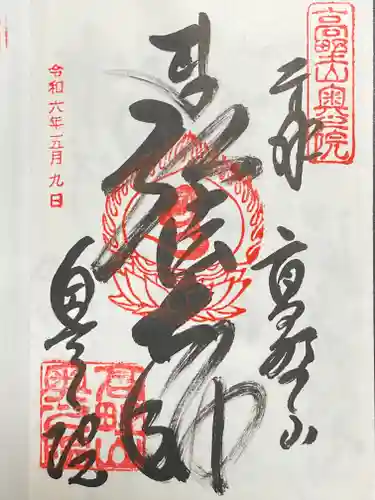 高野山奥院
奉拝
高野山
弘法大師
奥之院
令和六年五月九日